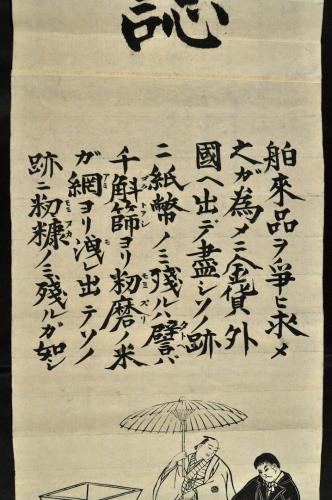 誌
舶來品ヲ爭ヒ求メ
之ガ為メニ金貨外
國ヘ出デ盡シソノ跡
ニ紙幣ノミ殘ルハ譬ヘバ
千斛篩ヨリ籾磨ノ米
ガ網ヨリ洩レ出テソノ
跡ニ籾糠ノミ殘ルガ如シ